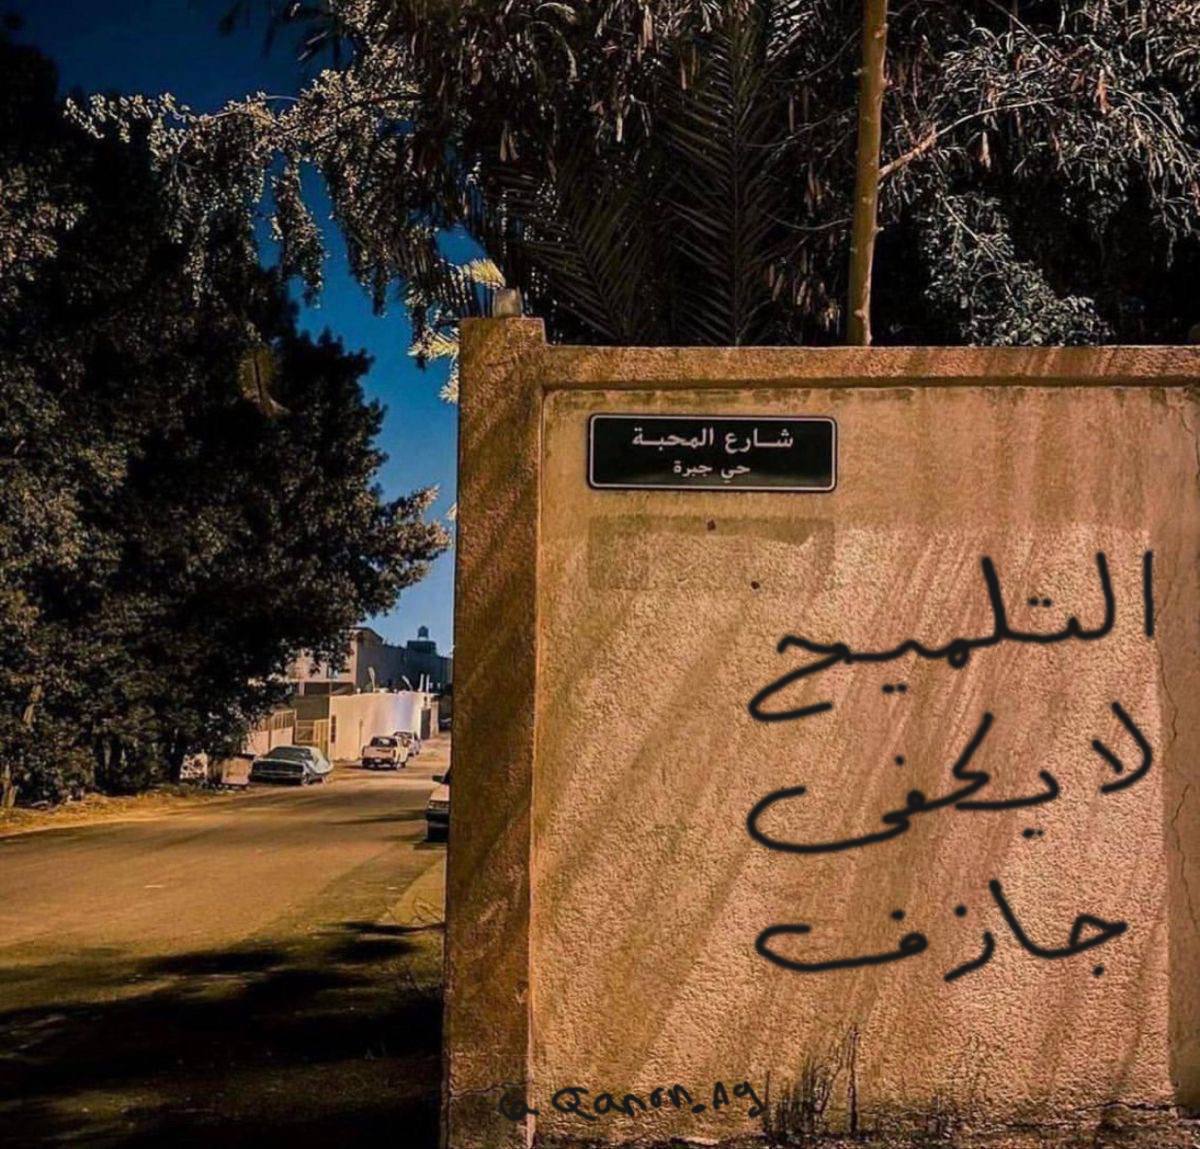 شارع المحبة
حي جبرة
التلميح
لا يكفي
جازف
@Qanon_Ag